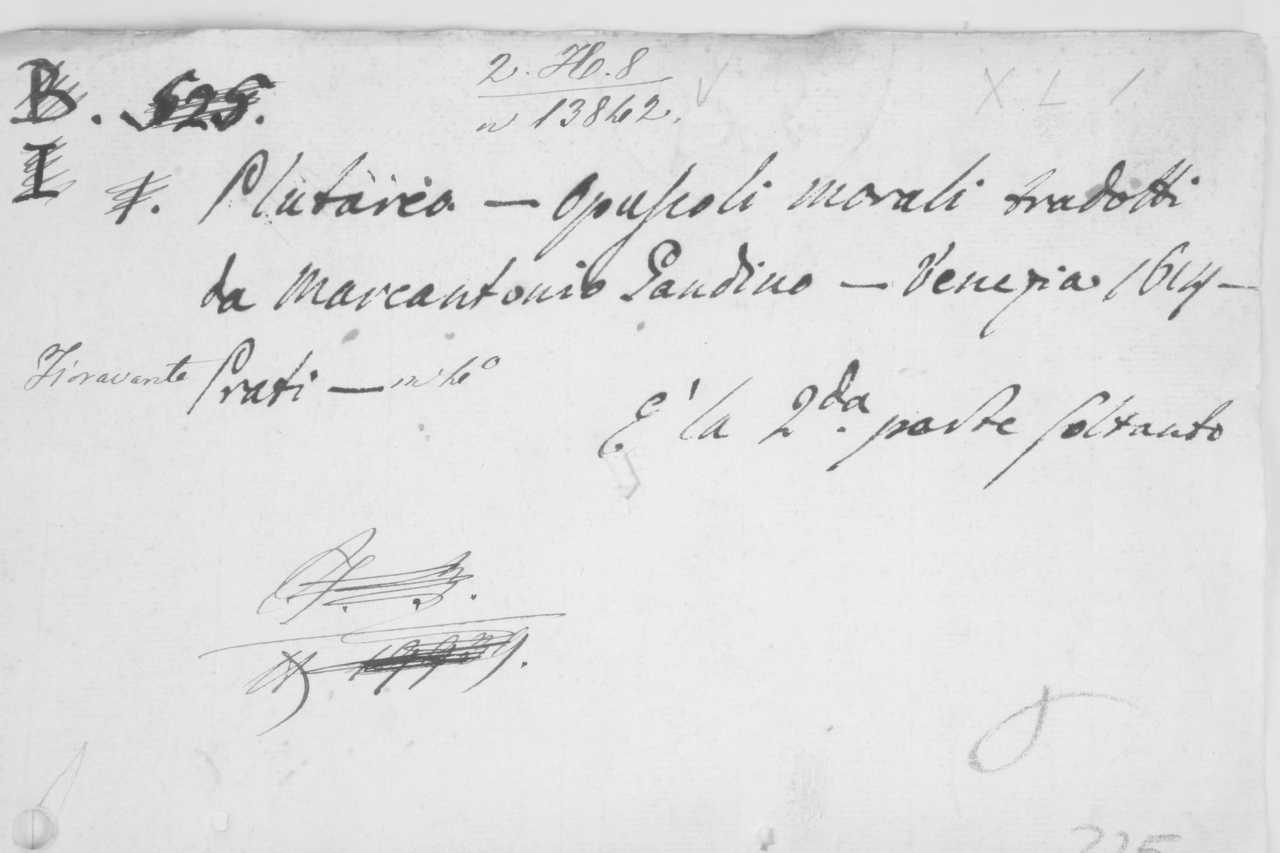 2. H. 8
n 13862.
B. 525.
XLI
I
Plutarco — Opuscoli morali tradotti
da Marcantonio Gandino — Venezia 1614 —
Fioravante Prati — in 4º
E' la 2.da parte soltanto
225